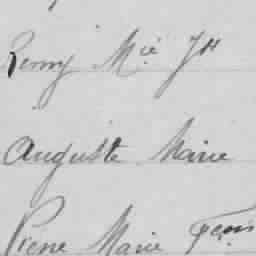 Remy Mie Jh
Auguste Marie
Pierre Marie Fçois